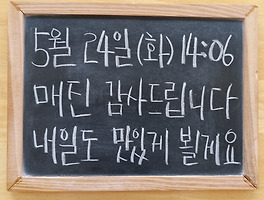 5월 24일(화) 14:06
매진 감사드립니다
내일도 맛있게 뵐게요